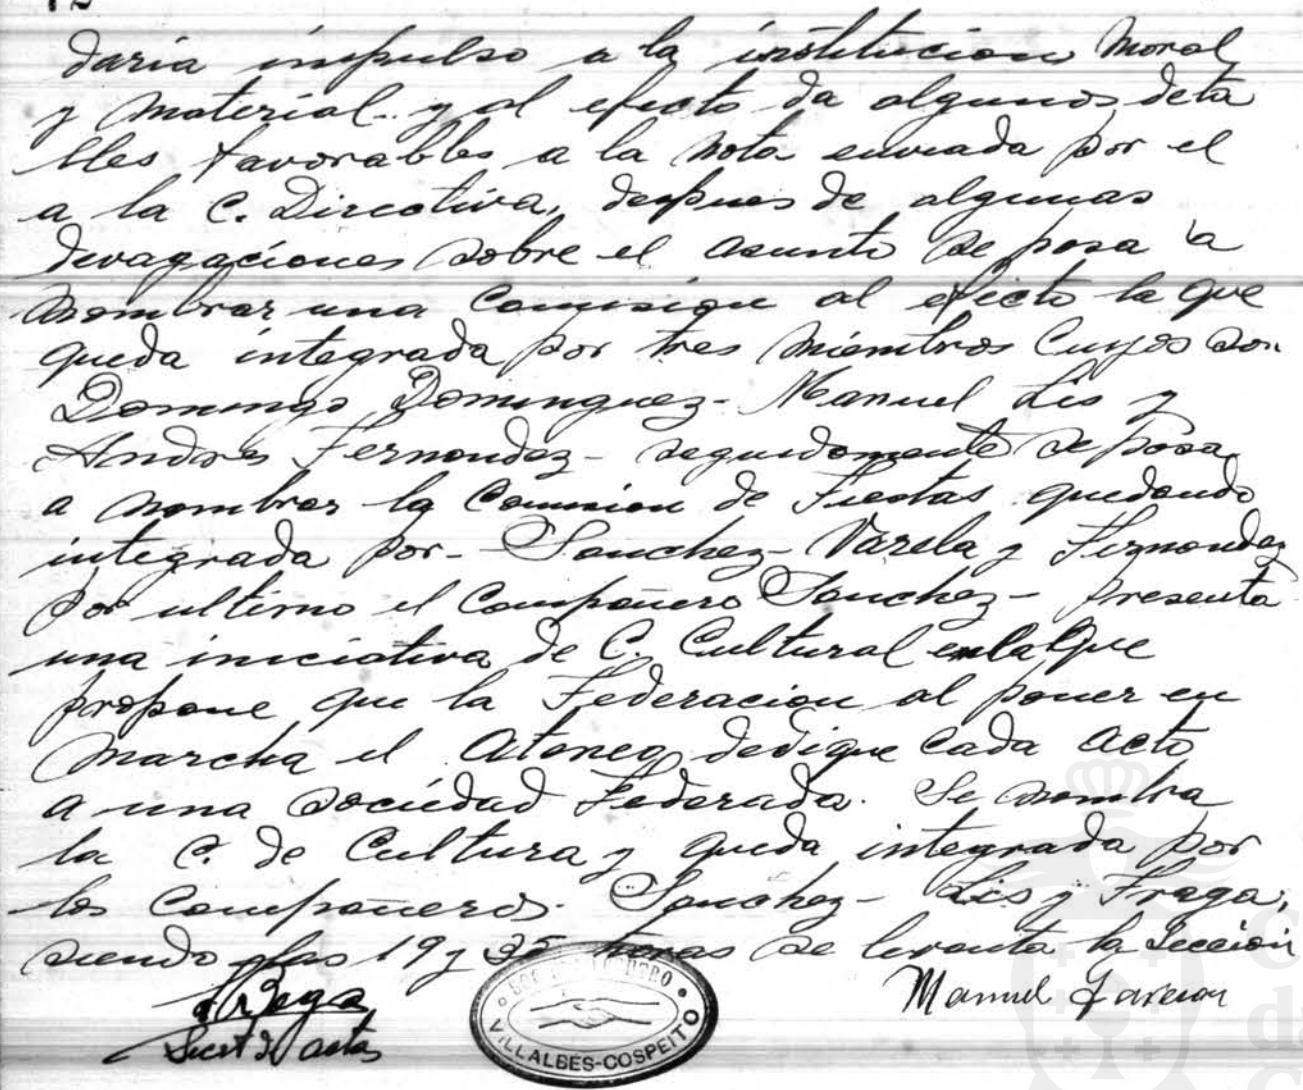 12
daria impulso a la institucion Moral
y Material.. y al efecto da algunos deta
lles favorables a la nota enviada por el
a la C. Directiva, despues de algunas
divagaciones sobre el asunto se pasa a
nombrar una Comision al efecto la que
queda integrada por tres Miembros Cuyos son
Domingo Dominguez - Manuel Lis y
Andres Fernandez - seguidamente se pasa
a nombrar la Comision de Fiestas quedando
integrada por - Sanchez - Varela y Fernandez
por ultimo el Compañero Sanchez - presenta
una iniciativa de C. Cultural en la que
propone que la Federacion al poner en
Marcha el Ateneo dedique Cada Acto
a una sociedad Federada. Se nombra
la C. de Cultura y queda integrada por
los Compañeros. Sanchez - Lis y Fraga;
siendo las 19 y 35 horas se levanta la Seccion
Bega
Secret de actas
Manuel
VILLALBES-COSPEITO